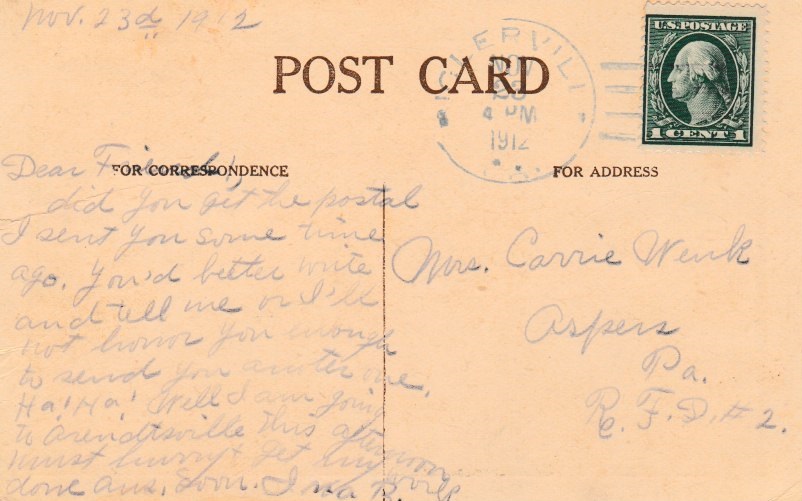 Nov. 23d 1912
POST CARD
U.S. POSTAGE
1 CENT 1
NOV
23
4 PM
1912
FOR CORRESPONDENCE
Dear Friend,
did you get the postal
I sent you some time
ago. You'd better write
and tell me or I'll
not honor you enough
to send you another one.
Ha! Ha! Well I am going
to Arendtsville this afternoon
must hurry & get my work
done ans. soon. Ina R.
FOR ADDRESS
Mrs. Carrie Wenk
Aspers
Pa.
R. F. D. # 2.